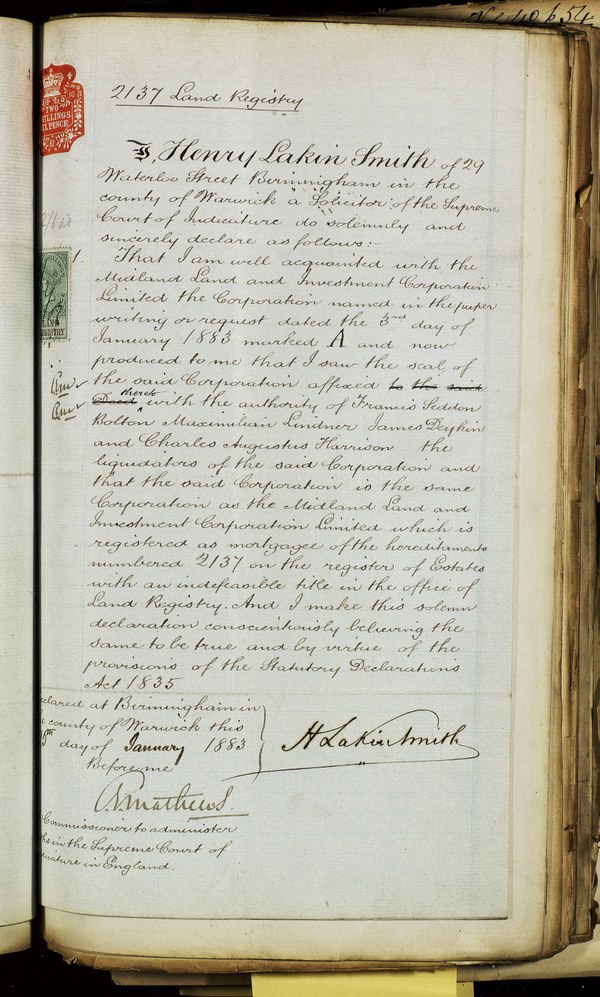 Vol 40 p 54
2137 Land Registry
TWO
SHILLINGS
SIXPENCE
I, Henry Lakin Smith of 29
Waterloo Street Birmingham in the
county of Warwick a Solicitor of the Supreme
Court of Judicature do solemnly and
sincerely declare as follows:-
1. That I am well acquainted with the
Midland Land and Investment Corporation
Limited the Corporation named in the paper
writing or request dated the 3rd day of
January 1883 marked A and now
produced to me that I saw the seal of
the said Corporation affixed to the said
Deed thereto with the authority of Francis Seddon
Bolton Maximilian Lindner James Deykin
and Charles Augustus Harrison the
liquidators of the said Corporation and
that the said Corporation is the same
Corporation as the Midland Land and
Investment Corporation Limited which is
registered as mortgagee of the hereditaments
numbered 2137 on the register of Estates
with an indefeasible title in the office of
Land Registry. And I make this solemn
declaration conscientiously believing the
same to be true and by virtue of the
provisions of the Statutory Declarations
Act 1835
eclared at Birmingham in
county of Warwick this
day of January 1883
Before me
H Lakin Smith
Mathews.
Commissioner to administer
hs in the Supreme Court of
icature in England.